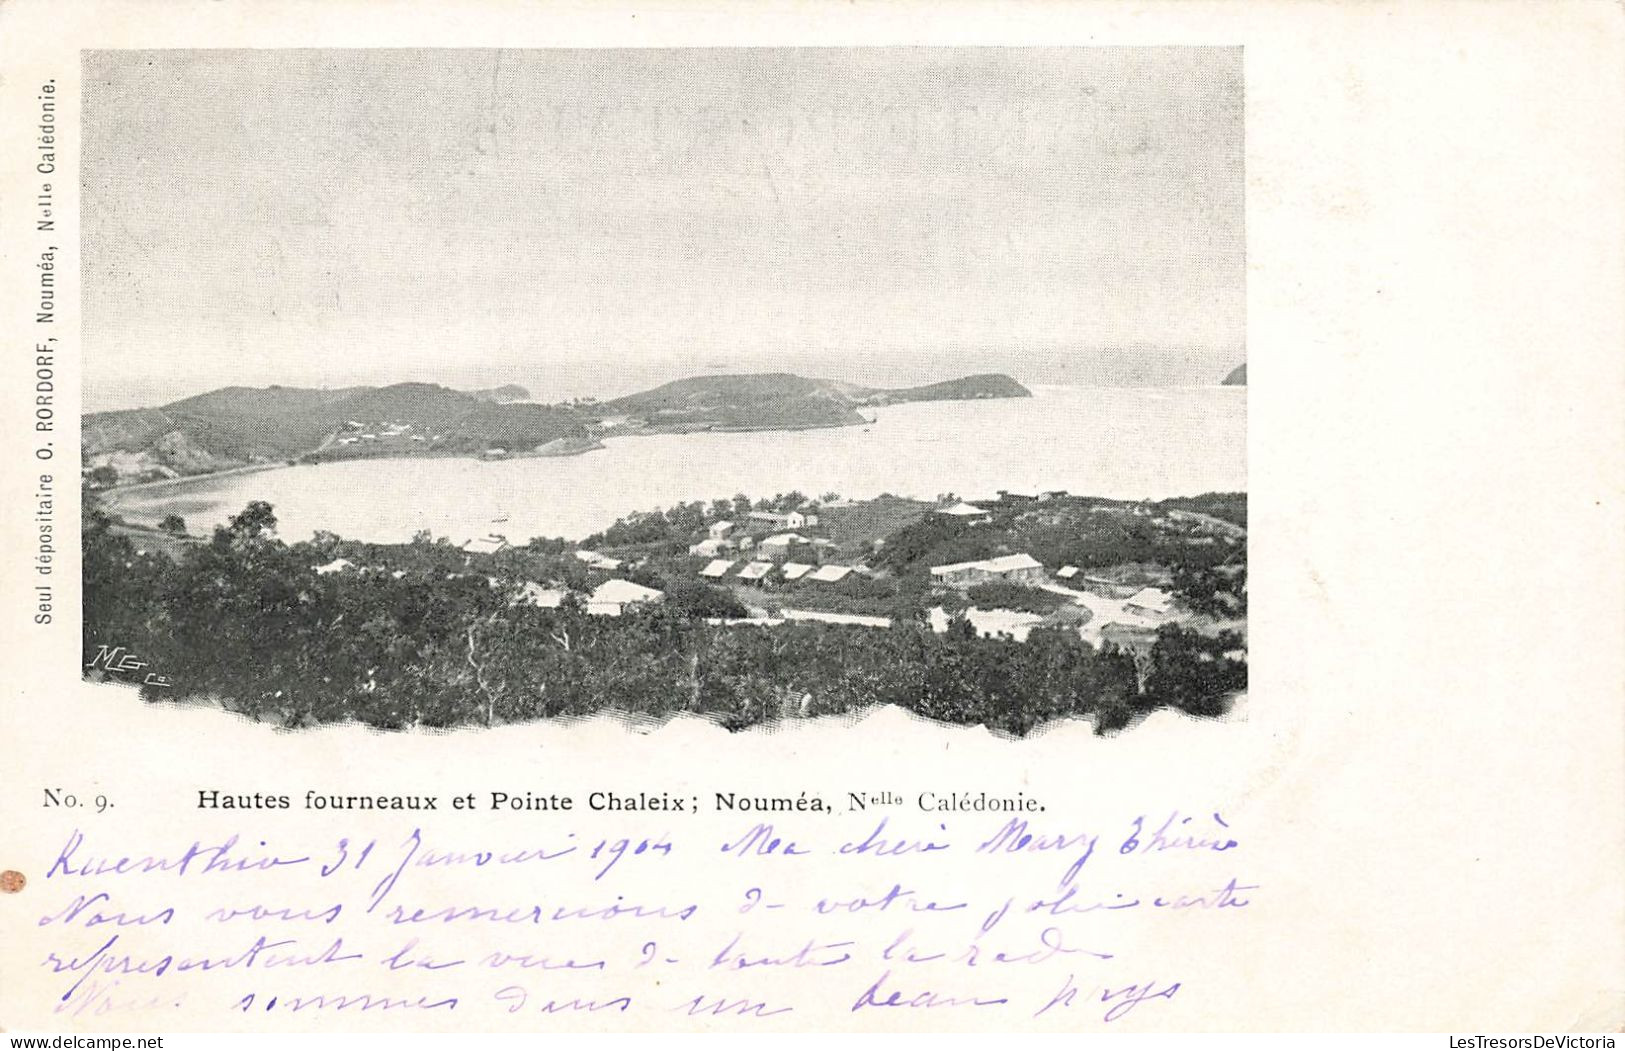 Seul dépositaire O. RORDORF, Nouméa, Nelle Calédonie.
MG Co
No. 9. Hautes fourneaux et Pointe Chaleix; Nouméa, Nelle Calédonie.
Kuenthio 31 Janvier 1904 Ma chère Mary Thérèse
Nous vous remercions de votre jolie carte
representent la vue de toute la rade
Nous sommes dans un beau pays
LesTresorsDeVictoria
delcampe.net